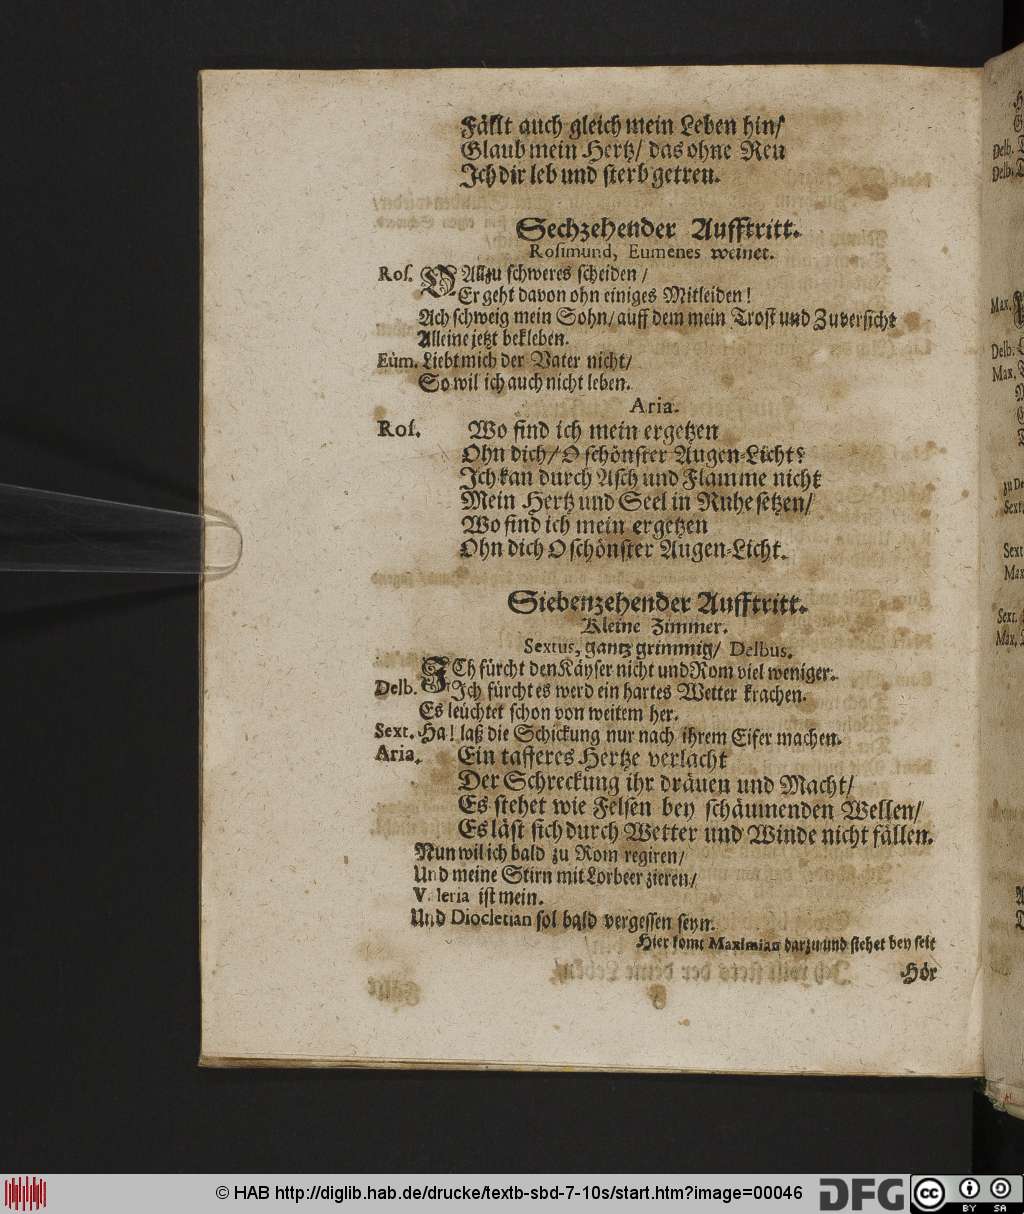 Fällt auch gleich mein Leben hin/
Glaub mein Hertz/ das ohne Reu
Ich dir leb und sterb getreu.
Sechzehender Aufftritt.
Rosimund, Eumenes weinet.
Ros. O Allzu schweres scheiden /
Er geht davon ohn einiges Mitleiden!
Ach schweig mein Sohn/ auff dem mein Trost und Zuversicht
Alleine jetzt bekleben.
Eům. Liebt mich der Vater nicht/
So wil ich auch nicht leben.
Aria.
Ros. Wo find ich mein ergetzen
Ohn dich/ O schönster Augen-Licht?
Ich kan durch Asch und Flamme nicht
Mein Hertz und Seel in Ruhe setzen/
Wo find ich mein ergetzen
Ohn dich O schönster Augen-Licht.
Siebenzehender Aufftritt.
Kleine Zimmer.
Sextus, gantz grimmig/ Delbus.
ICh fürcht den Käyser nicht und Rom viel weniger.
Delb. Ich fürcht es werd ein hartes Wetter krachen.
Es leüchtet schon von weitem her.
Sext. Ha! laß die Schickung nur nach ihrem Eifer machen.
Aria. Ein tafferes Hertze verlacht
Der Schreckung ihr dräuen und Macht/
Es stehet wie Felsen bey schäumenden Wellen/
Es läst sich durch Wetter und Winde nicht fällen.
Nun wil ich bald zu Rom regiren/
Und meine Stirn mit Lorbeer zieren/
Valeria ist mein.
Und Diocletian sol bald vergessen seyn.
Hier komt Maximian darzu und stehet bey seit
Hör
© HAB http://diglib.hab.de/drucke/textb-sbd-7-10s/start.htm?image=00046
DFG
cc BY SA